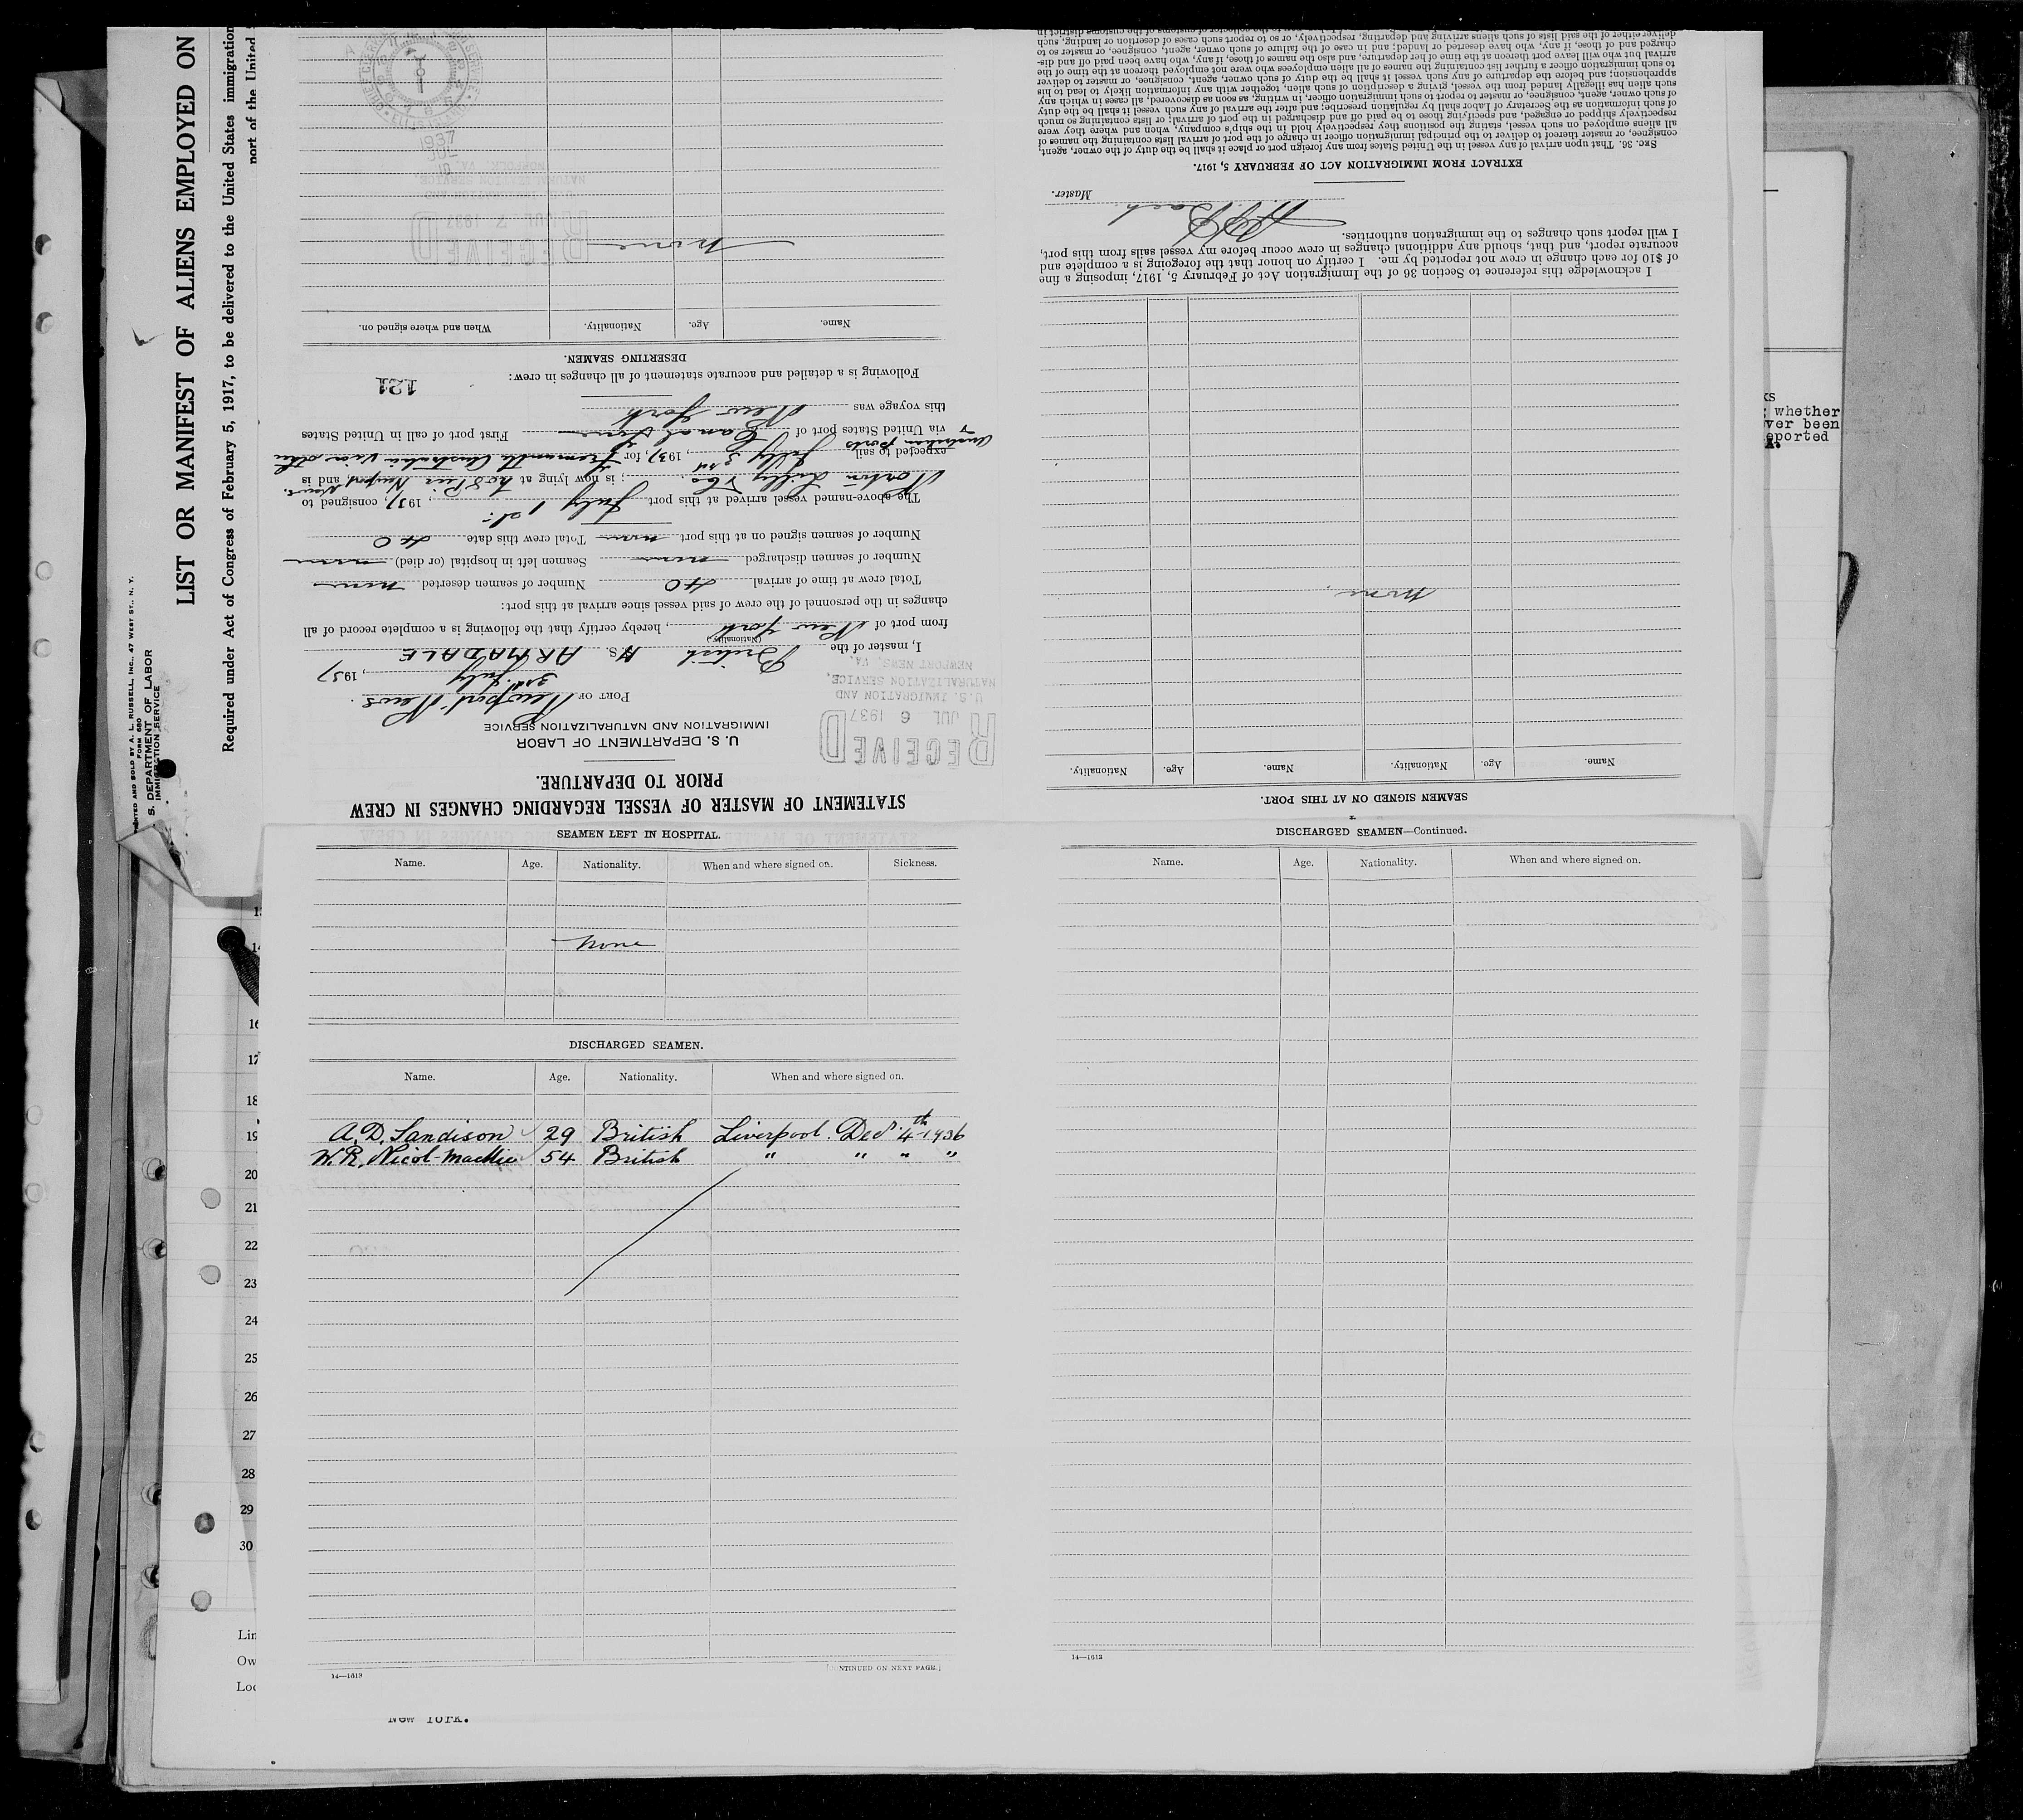 LIST OR MANIFEST OF ALIENS EMPLOYED ON
Required under Act of Congress of February 5, 1917, to be delivered to the United States immigration
port of the United
PRINTED AND SOLD BY A. L. RUSSELL, INC., 47 WEST ST., N. Y.
FORM 680
S. DEPARTMENT OF LABOR
IMMIGRATION SERVICE
STATEMENT OF MASTER OF VESSEL REGARDING CHANGES IN CREW
PRIOR TO DEPARTURE.
U. S. DEPARTMENT OF LABOR
IMMIGRATION AND NATURALIZATION SERVICE
RECEIVED
JUL 6 1937
U. S. IMMIGRATION AND
NATURALIZATION SERVICE,
NEWPORT NEWS, VA.
PORT OF Newport News.
3rd. July, 1937
I, master of the British M.S. ARMADALE
(Nationality)
from port of New York, hereby certify that the following is a complete record of all
changes in the personnel of the crew of said vessel since arrival at this port:
Total crew at time of arrival 40 Number of seamen deserted none
Number of seamen discharged none Seamen left in hospital (or died) none
Number of seamen signed on at this port none Total crew this date 40
The above-named vessel arrived at this port July 1st., 1937, consigned to
Norton Lilly & Co.; is now lying at C&O Pier Newport News., and is
expected to sail July 3rd, 1937, for Fremantle Australia via other
Australian ports
via United States port of Canal Zone First port of call in United States
this voyage was New York
121
Following is a detailed and accurate statement of all changes in crew:
DESERTING SEAMEN.
Name. Age. Nationality. When and where signed on.
none
RECEIVED
JUL 7 1937
NATURALIZATION SERVICE,
NORFOLK, VA.
1937
JUL
SEAMEN SIGNED ON AT THIS PORT.
Name. Age. Nationality. Name. Age. Nationality.
none
I acknowledge this reference to Section 36 of the Immigration Act of February 5, 1917, imposing a fine
of $10 for each change in crew not reported by me. I certify on honor that the foregoing is a complete and
accurate report, and that, should any additional changes in crew occur before my vessel sails from this port,
I will report such changes to the immigration authorities.
Master.
EXTRACT FROM IMMIGRATION ACT OF FEBRUARY 5, 1917.
SEC. 36. That upon arrival of any vessel in the United States from any foreign port or place it shall be the duty of the owner, agent,
consignee, or master thereof to deliver to the principal immigration officer in charge of the port of arrival lists containing the names of
all aliens employed on such vessel, stating the positions they respectively hold in the ship's company, when and where they were
respectively shipped or engaged, and specifying those to be paid off and discharged in the port of arrival; or lists containing so much
of such information as the Secretary of Labor shall by regulation prescribe; and after the arrival of any such vessel it shall be the duty
of such owner, agent, consignee, or master to report to such immigration officer, in writing, as soon as discovered, all cases in which any
such alien has illegally landed from the vessel, giving a description of such alien, together with any information likely to lead to his
apprehension; and before the departure of any such vessel it shall be the duty of such owner, agent, consignee, or master to deliver
to such immigration officer a further list containing the names of all alien employees who were not employed thereon at the time of the
arrival but who will leave port thereon at the time of her departure, and also the names of those, if any, who have been paid off and dis-
charged and of those, if any, who have deserted or landed; and in case of the failure of such owner, agent, consignee, or master so to
deliver either of the said lists of such aliens arriving and departing, respectively, or so to report such cases of desertion or landing, such
SEAMEN LEFT IN HOSPITAL.
Name. Age. Nationality. When and where signed on. Sickness.
none
DISCHARGED SEAMEN.
Name. Age. Nationality. When and where signed on.
A. D. Sandison 29 British Liverpool. Dec. 4th 1936
W. R. Nicol-Mackie 54 British " " " "
14—1613 [CONTINUED ON NEXT PAGE.]
DISCHARGED SEAMEN—Continued.
Name. Age. Nationality. When and where signed on.
14—1613
whether
ver been
eported
13
14
16
17
18
19
20
21
22
23
24
25
26
27
28
29
30
Lin
Ow
Loc
New York.